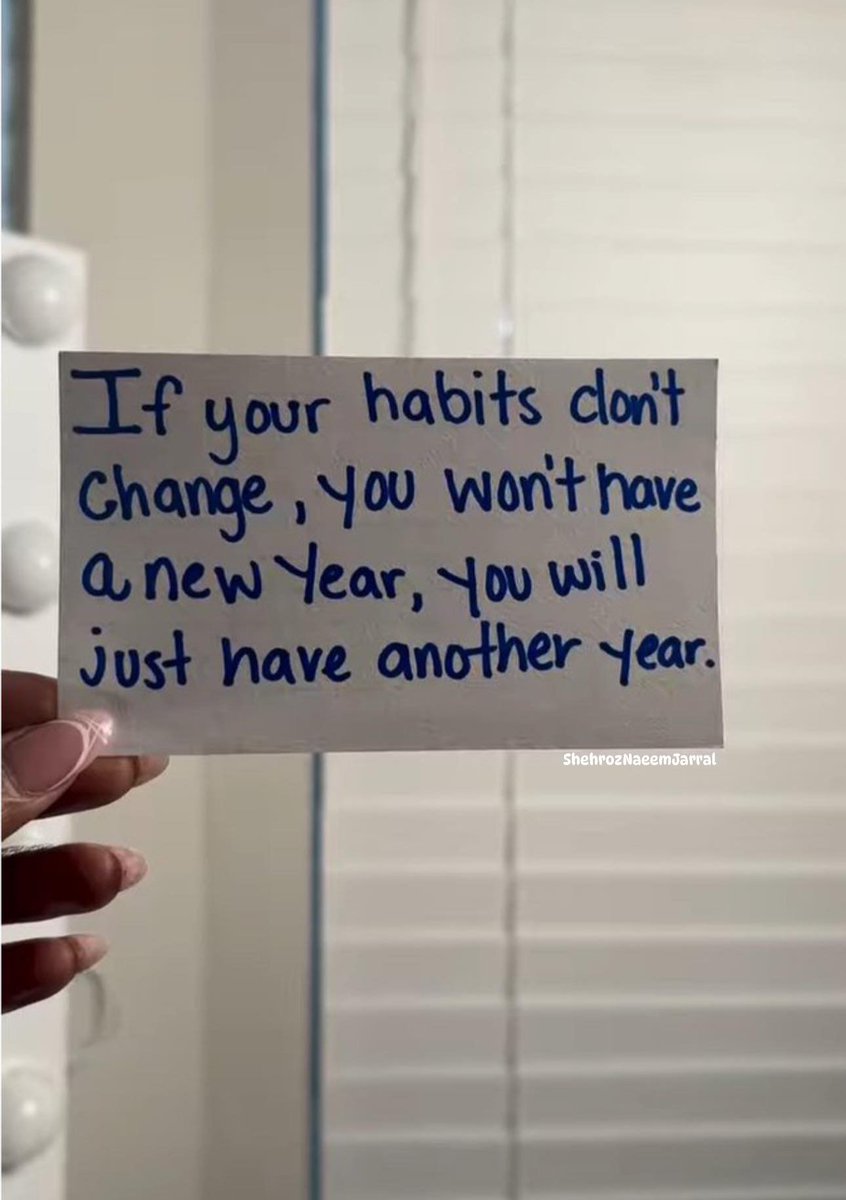 If your habits don't
change, you won't have
a new year, you will
just have another year.
ShehrozNaeemJarral